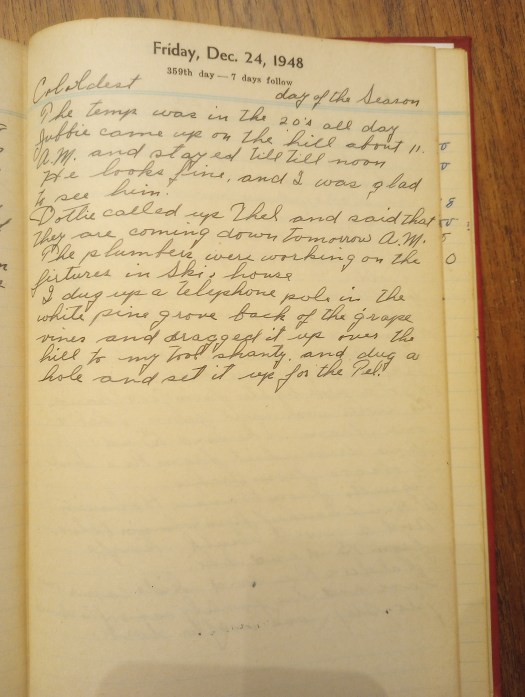 Friday, Dec. 24, 1948
359th day — 7 days follow
Cololdest day of the Season
The temp was in the 20's all day
Jubbie came up on the hill about 11.
A.M. and stayed till till noon
He looks fine, and I was glad
to see him.
Dottie called up Thel and said that
they are coming down tomorrow A.M.
The plumbers were working on the
fixtures in Ski's house
I dug up a telephone pole in the
white pine grove back of the grape
vines and dragged it up over the
hill to my tool shanty. and dug a
hole and set it up for the Tel.